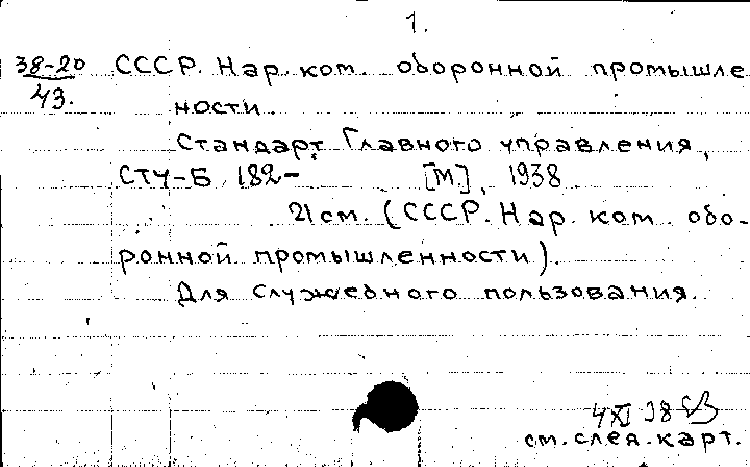 1.
38-20 СССР. Нар. ком. оборонной промышле
43. ности.
Стандарт Главного управления,
СТУ-Б 182- [М.], 1938
21 см. (СССР. Нар. ком. обо-
ронной промышленности).
Для служебного пользования.
4 XI 38
см. след. карт.